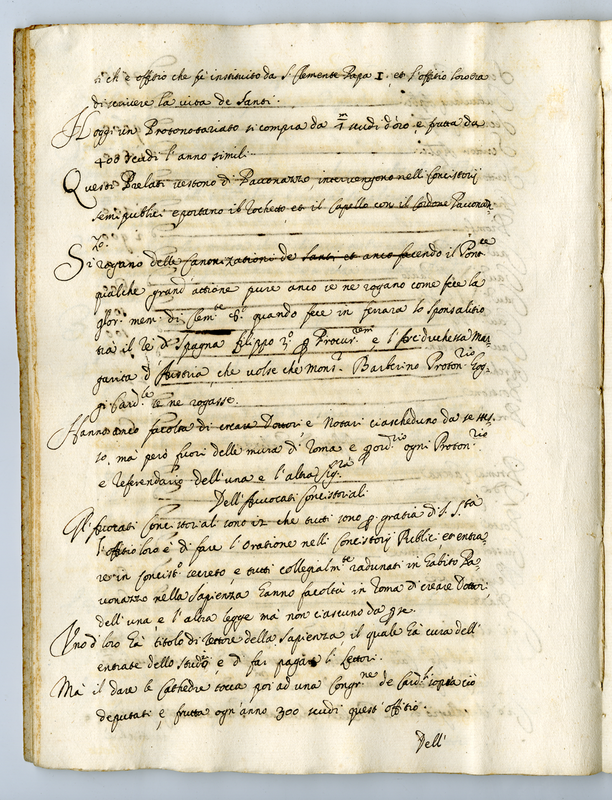 ti ch'è offitio che fù instituito da S. Clemente Papa I. et l'offitio loro era
di scrivere la vita de Santi.
Hoggi un Protonotariato si compra da 7 m scudi d'oro, e frutta da
400 scudi l'anno simili.
Questi Prelati vestono di Pavonazzo intervengono nelli Concistorij
semipublici e portano il Rochetto et il Capello con il Cordone Pavonaz
zo.
Si rogano delle Canonizationi de Santi, et anco facendo il Pont.ce
qualche grand'attione pure anco se ne rogano come fece la
glor. mem. di Clem.te 8.º quando fece in ferrara lo sponsalitio
tra il Rè di Spagna filippo 3.º p Procur.rem e l'Arciduchessa Mar
garita d'Austria, che volse che Mons.r Barberino Proton.rio Hog
gi Card.le se ne rogasse.
Hanno anco facoltà di creare Dottori e Notari ciascheduno da se stes
so, mà però fuori delle mura di Roma e p ord.rio ogni Proton.rio
è Referendario dell'una e l'altra Sig.ra
Dell'Avvocati Concistoriali
Gl'Avocati Concistoriali sono 12 che tutti sono p gratia di S. S.ta
l'offitio loro è di fare l'Oratione nelli Concistorij Publici et entra
re in Concist.o secreto, e tutti collegialm.te radunati in habito Pa
vonazzo nella Sapienza hanno facoltà in Roma di creare Dottori
dell'una, e l'altra legge mà non ciascuno da p se.
Uno di loro hà titolo di Rettore della Sapienza il quale hà cura dell'
entrate dello studio, e di far pagare i lettori.
Mà il dare le Cathedre tocca poi ad una Congr.ne de Card.li sopra ciò
deputati, e frutta ogn'anno 300 scudi quest'offitio.
Dell'